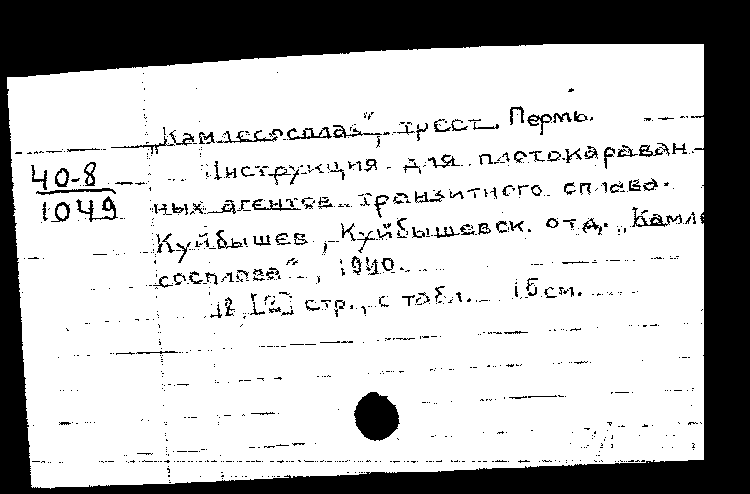 „Камлесосплав", трест. Пермь.
40-8
1049
Инструкция для плотокараван-
ных агентов транзитного сплава.
Куйбышев, Куйбышевск. отд. „Камле
сосплава", 1940.
18, [2] стр., с табл. 15 см.